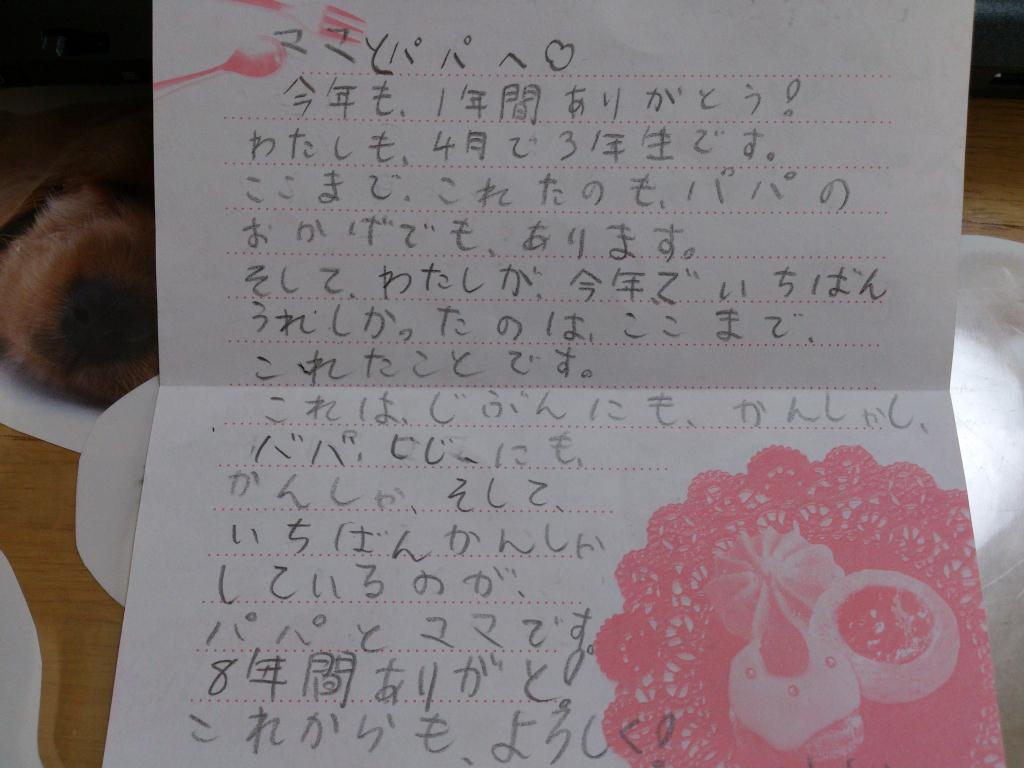 ママとパパへ♡
今年も、1年間ありがとう!
わたしも、4月で3年生です。
ここまで、これたのも、パパの
おかげでも、あります。
そして、わたしが、今年でいちばん
うれしかったのは、ここまで、
これたことです。
これは、じぶんにも、かんしゃし、
バババ、とじーにも、
かんしゃ、そして、
いちばんかんしゃ
しているのが、
パパとママです。
8年間ありがと!
これからも、よろしく!